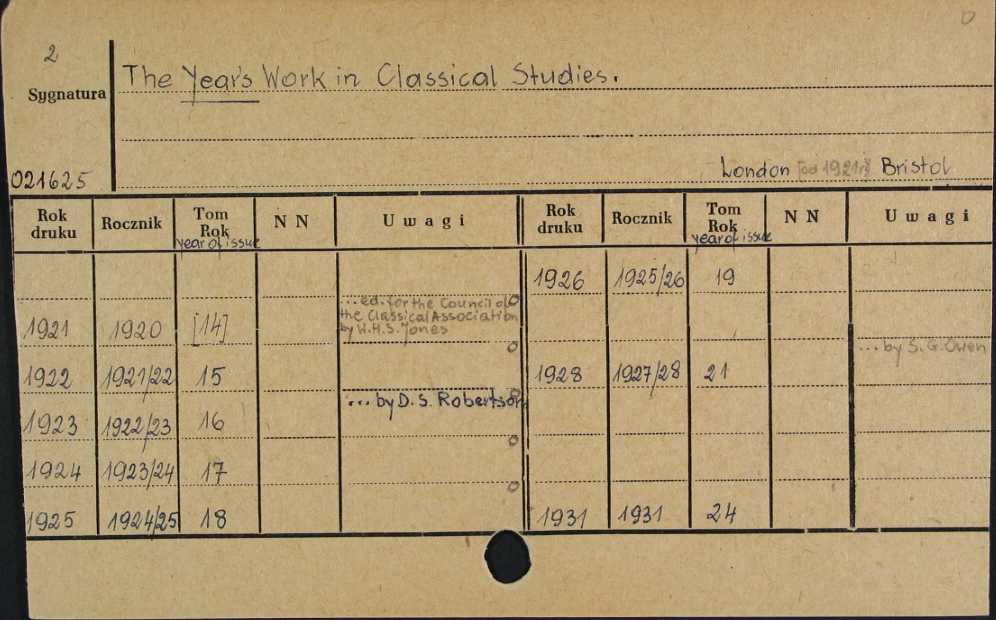 2
0
The Year's Work in Classical Studies.
Sygnatura
021625
London [od 1921r] Bristol
Rok druku Rocznik Tom Rok year of issue N N Uwagi Rok druku Rocznik Tom Rok year of issue N N Uwagi
1926 1925/26 19
...ed. for the Council of
the Classical Association
by W.H.S. Jones
1921 1920 [14]
...by S. G. Owen
1922 1921/22 15
1928 1927/28 21
...by D. S. Robertson
1923 1922/23 16
1924 1923/24 17
1925 1924/25 18
1931 1931 24